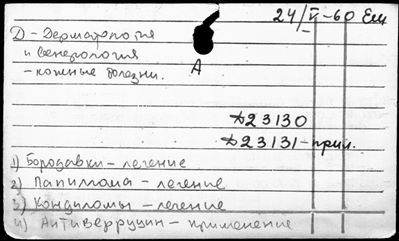 24/V-60 Ем
Д - Дерматология
и венерология
- кожные болезни.
А
Д23130
Д23131-прим.
1) Бородавки - лечение
2) Папиллома - лечение
3) Кондиломы - лечение
4) Антиверруцин - применение